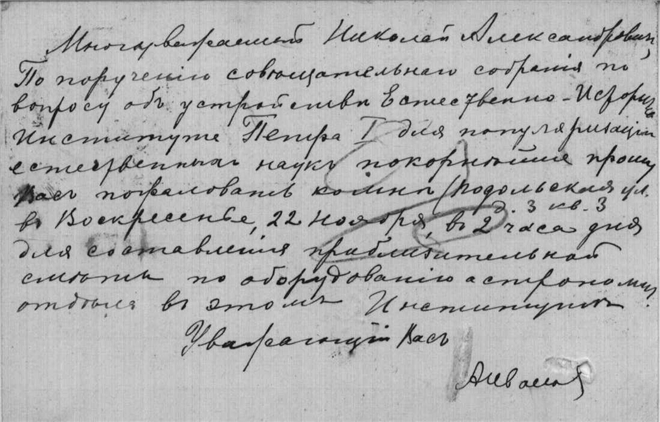 Многоуважаемый Николай Александрович,
По поручению совѣщательнаго собранія по
вопросу объ устройствѣ Естественно-Историч.
Института Петра I для популяризаціи
естественныхъ наукъ покорнѣйше прошу
Васъ пожаловать ко мнѣ (Подольская ул.
д. 3 кв. 3
въ Воскресенье, 22 Ноября, въ 2 часа дня
для составленія приблизительной
смѣты по оборудованію астрономич.
отдѣла въ этомъ Институтѣ.
Уважающій Васъ